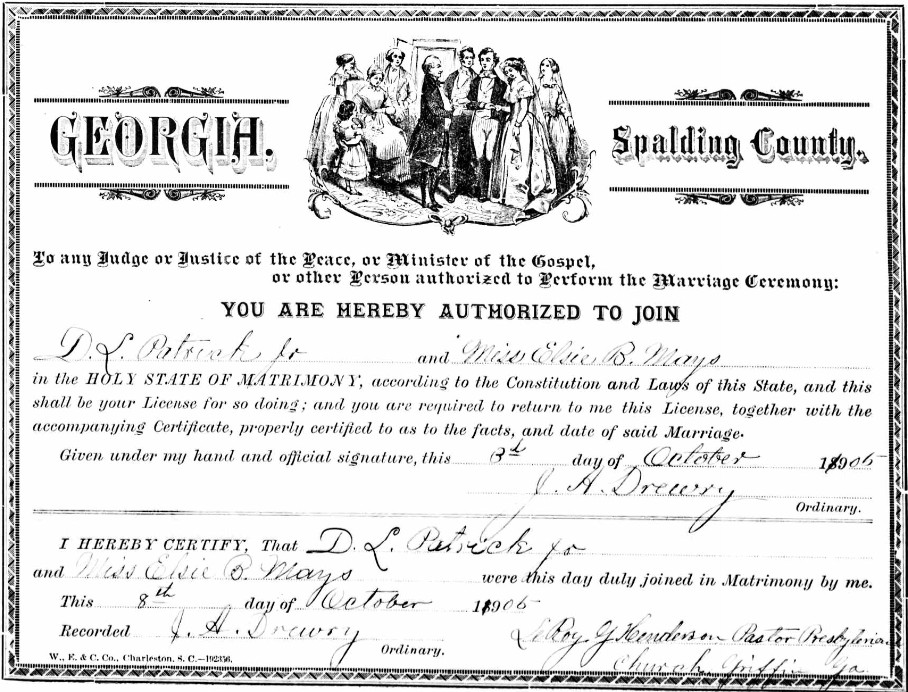 GEORGIA.
Spalding County.
To any Judge or Justice of the Peace, or Minister of the Gospel,
or other Person authorized to Perform the Marriage Ceremony:
YOU ARE HEREBY AUTHORIZED TO JOIN
D. L. Patrick Jr and Miss Elsie B. Mays
in the HOLY STATE OF MATRIMONY, according to the Constitution and Laws of this State, and this
shall be your License for so doing; and you are required to return to me this License, together with the
accompanying Certificate, properly certified to as to the facts, and date of said Marriage.
Given under my hand and official signature, this 3d day of October 1905
J. A. Drewry
Ordinary.
I HEREBY CERTIFY, That D. L. Patrick Jr
and Miss Elsie B. Mays were this day duly joined in Matrimony by me.
This 8th day of October 1905
Recorded J. A. Drewry Ordinary.
LeRoy G Henderson Pastor Presbyterian
Church Griffin Ga
W., E. & C. Co., Charleston, S. C.—102356.